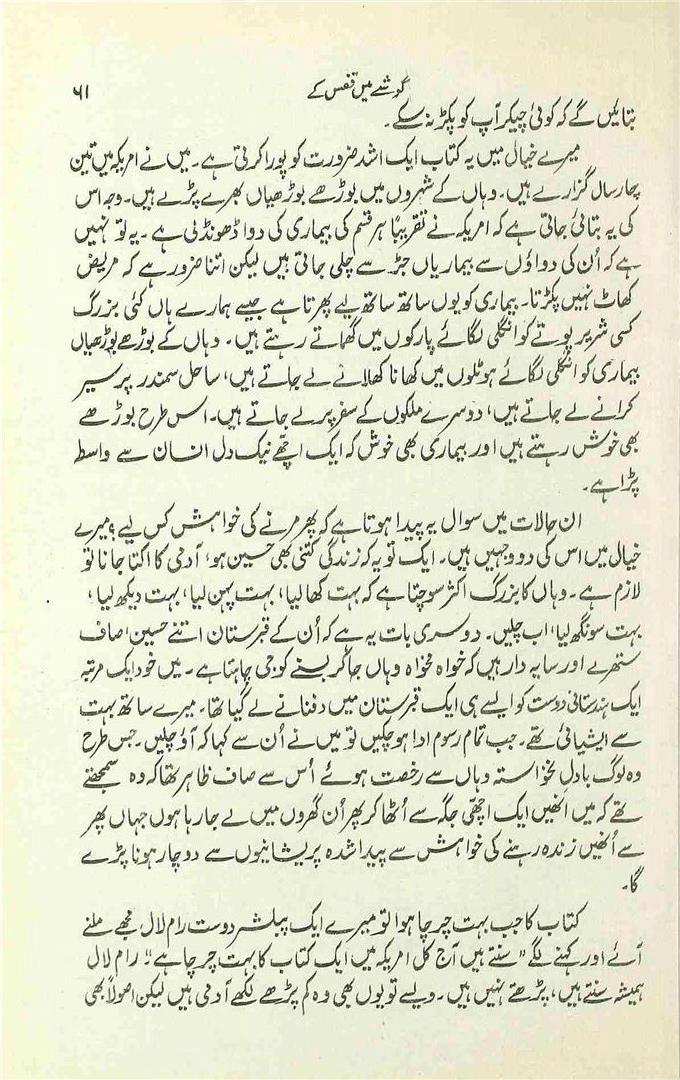 گوشے میں قفس کے ۶۱
بتایئں گے کہ کوئی چیکر آپ کو پکڑ نہ سکے۔
میرے خیال میں یہ کتاب ایک اشد ضرورت کو پورا کرتی ہے۔ میں نے امریکہ میں تین
چار سال گزارے ہیں۔ وہاں کے شہروں میں بوڑھے بوڑھیاں بھرے پڑے ہیں۔ وجہ اس
کی یہ بتائی جاتی ہے کہ امریکہ نے تقریباً ہر قسم کی بیماری کی دوا ڈھونڈنی ہے۔ یہ تو نہیں
ہے کہ اُن کی دواؤں سے بیماریاں جڑ سے چلی جاتی ہیں لیکن اتنا ضرور ہے کہ مریض
کھاٹ نہیں پکڑتا۔ بیماری کو یوں ساتھ ساتھ لیے پھرتا ہے جیسے ہمارے ہاں کئی بزرگ
کسی شریر پوتے کو انگلی لگائے پارکوں میں گھماتے رہتے ہیں۔ وہاں کے بوڑھے بوڑھیاں
بیماری کو انگلی لگائے ہوٹلوں میں کھانا کھلانے لے جاتے ہیں، ساحل سمندر پر سیر
کرانے لے جاتے ہیں، دوسرے ملکوں کے سفر پر لے جاتے ہیں۔ اس طرح بوڑھے
بھی خوش رہتے ہیں اور بیماری بھی خوش کہ ایک اچھے نیک دل انسان سے واسطہ
پڑا ہے۔
ان حالات میں سوال یہ پیدا ہوتا ہے کہ پھر مرنے کی خواہش کس لیے؟ میرے
خیال میں اس کی دو وجہیں ہیں۔ ایک تو یہ کہ زندگی کتنی بھی حسین ہو، آدمی کا اکتا جانا تو
لازم ہے۔ وہاں کا بزرگ اکثر سوچتا ہے کہ بہت کھا لیا، بہت پہن لیا، بہت دیکھ لیا،
بہت سونگھ لیا، اب چلیں۔ دوسری بات یہ ہے کہ اُن کے قبرستان اتنے حسین، صاف
ستھرے اور سایہ دار ہیں کہ خواہ مخواہ وہاں جا کر بسنے کو جی چاہتا ہے۔ میں خود ایک مرتبہ
ایک ہندستانی دوست کو ایسے ہی ایک قبرستان میں دفنانے لے گیا تھا۔ میرے ساتھ بہت
سے ایشیائی تھے۔ جب تمام رسوم ادا ہو چکیں تو میں نے اُن سے کہا کہ آؤ چلیں۔ جس طرح
وہ لوگ بادلِ نخواستہ وہاں سے رخصت ہوئے اُس سے صاف ظاہر تھا کہ وہ سمجھتے
تھے کہ میں انھیں ایک اچھی جگہ سے اُٹھا کر پھر اُن گھروں میں لے جا رہا ہوں جہاں پھر
سے اُنھیں زندہ رہنے کی خواہش سے پیدا شدہ پریشانیوں سے دوچار ہونا پڑے
گا۔
کتاب کا جب بہت چرچا ہوا تو میرے ایک پبلشر دوست رام لال مجھے ملنے
آئے اور کہنے لگے "سنتے ہیں آج کل امریکہ میں ایک کتاب کا بہت چرچا ہے"! رام لال
ہمیشہ سنتے ہیں، پڑھتے نہیں ہیں۔ ویسے تو یوں بھی وہ کم پڑھے لکھے آدمی ہیں لیکن اصولاً بھی